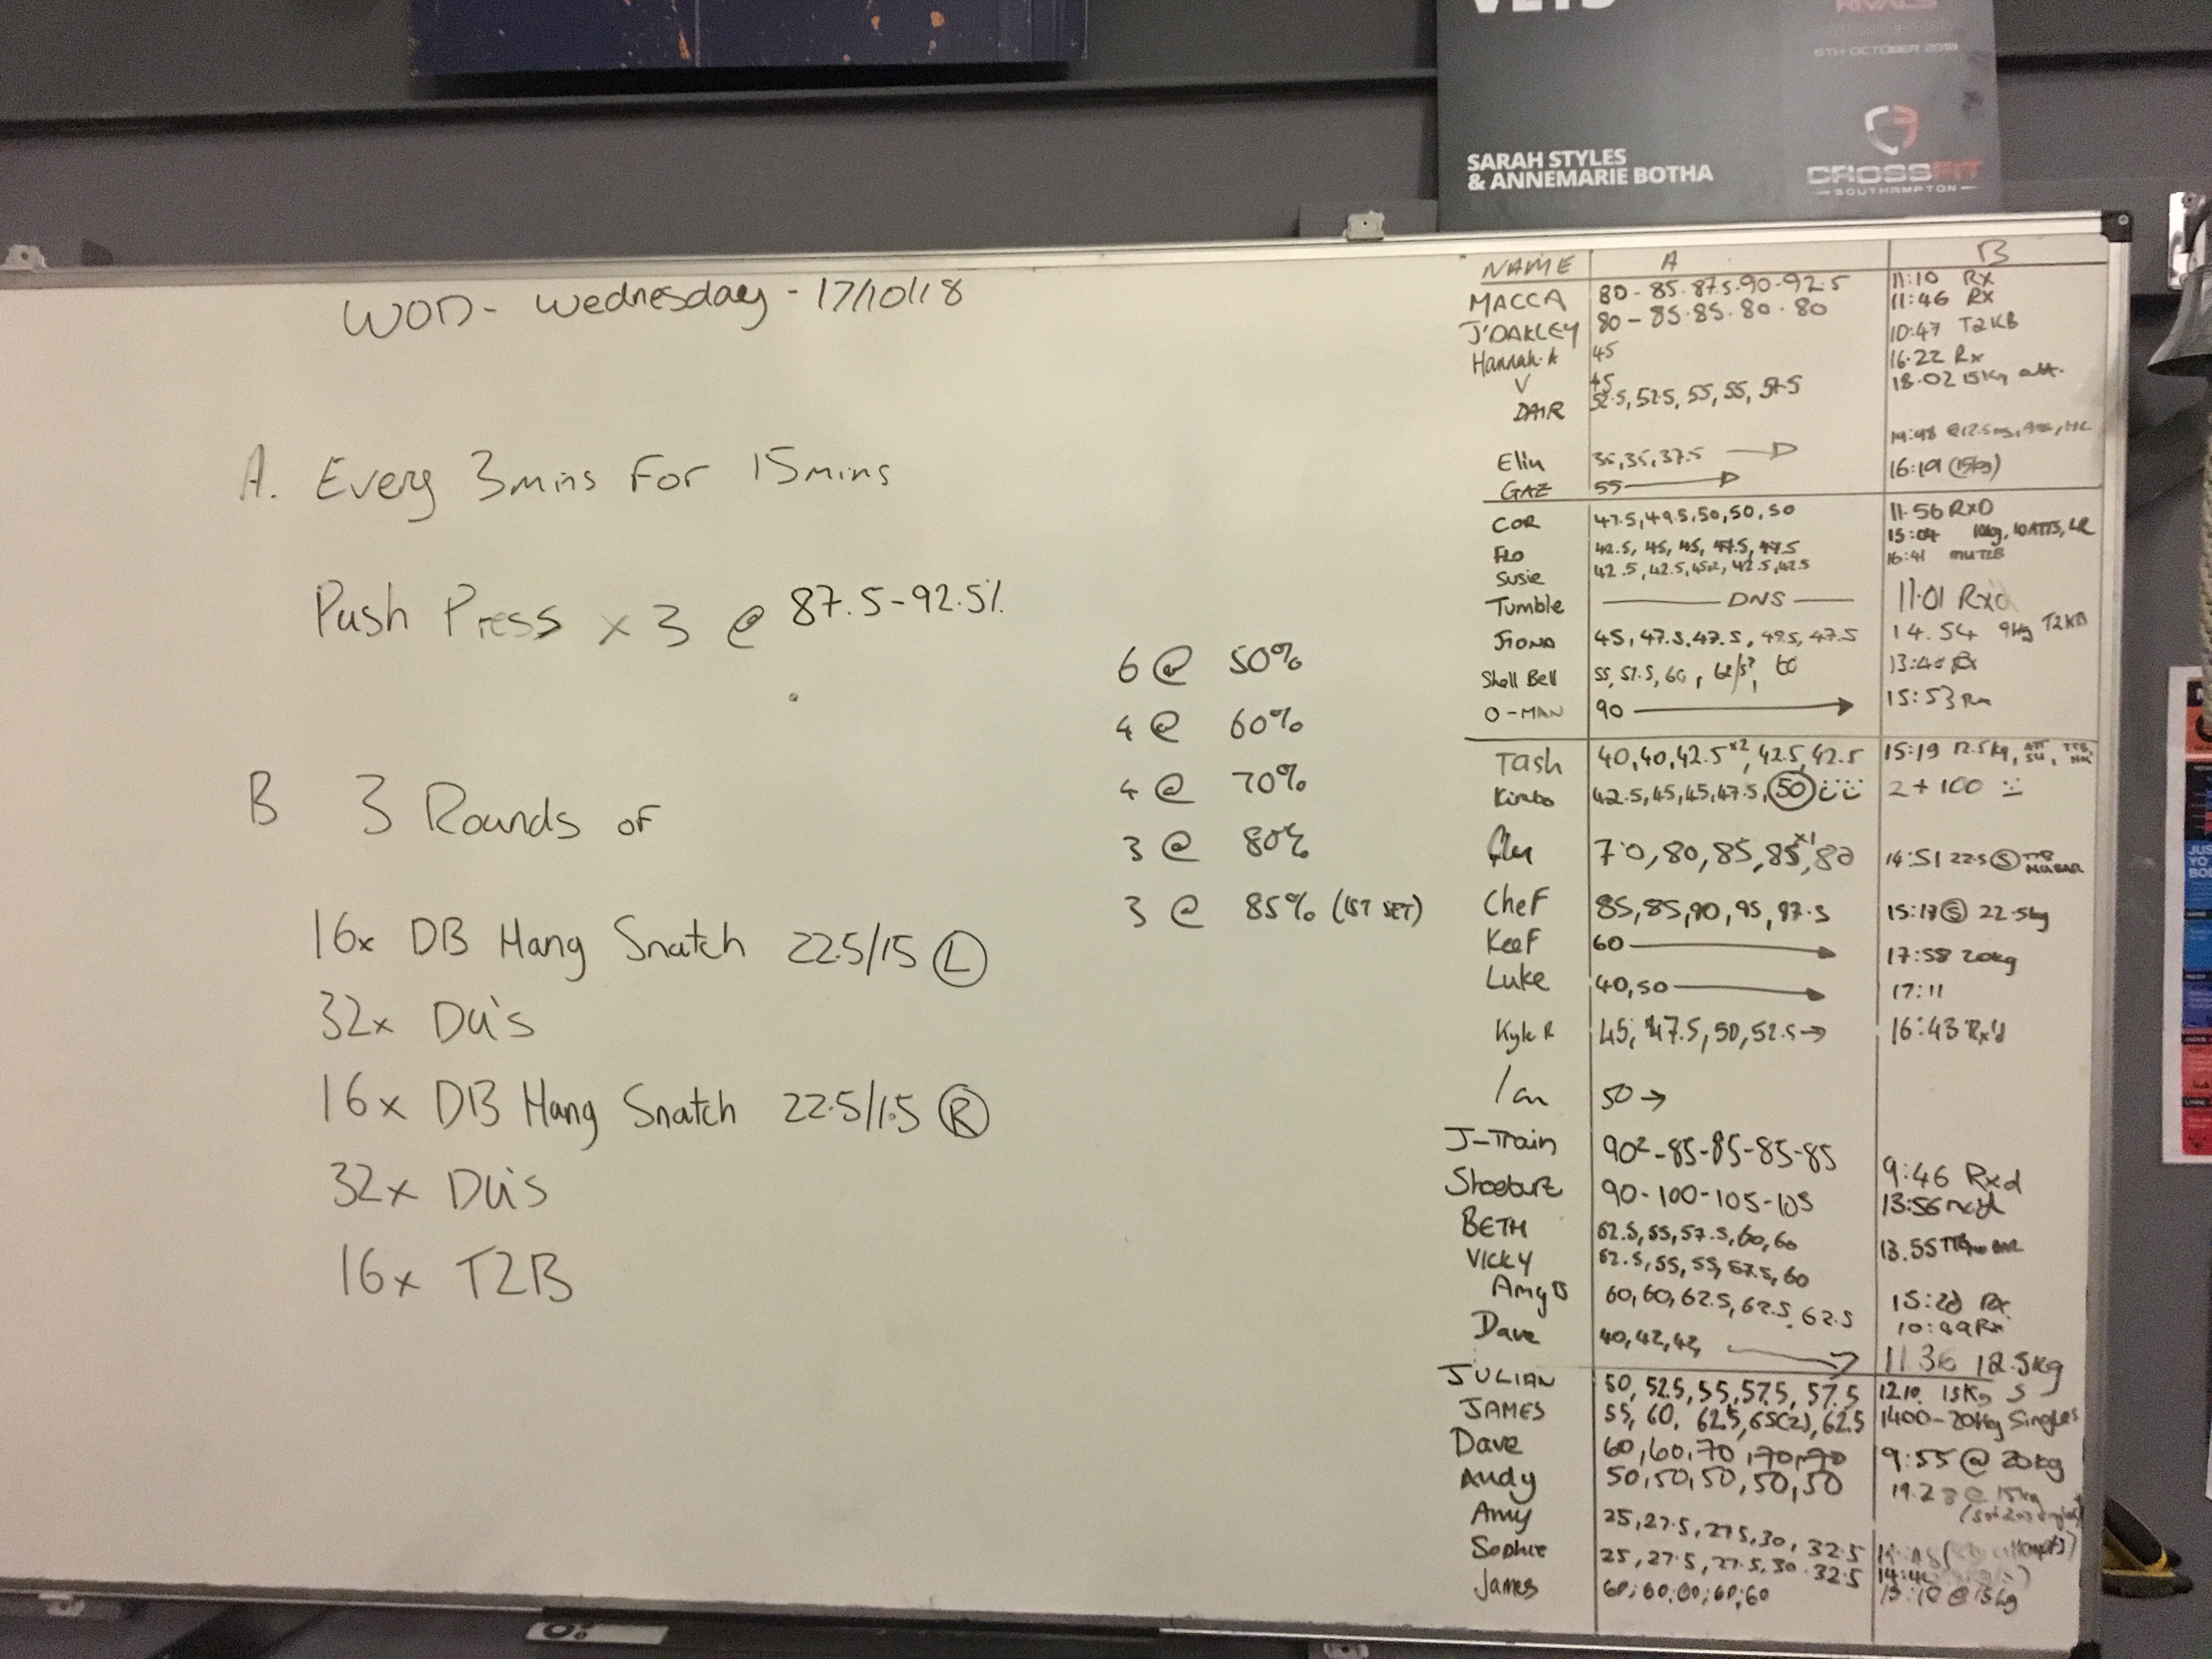 RIVALS
6TH OCTOBER 2018
SARAH STYLES
& ANNEMARIE BOTHA
CROSSFIT
SOUTHAMPTON
WOD - Wednesday - 17/10/18
A. Every 3mins For 15mins
Push Press x 3 @ 87.5-92.5%
6 @ 50%
4 @ 60%
4 @ 70%
3 @ 80%
3 @ 85% (1ST SET)
B 3 Rounds of
16x DB Hang Snatch 22.5/15 L
32x Du's
16x DB Hang Snatch 22.5/15 R
32x Du's
16x T2B
NAME A B
MACCA 80-85-87.5-90-92.5 11:10 RX
J'OAKLEY 80-85-85-80-80 11:46 RX
Hannah.A 45 10:47 T2KB
V 45 16:22 Rx
DAIR 52.5, 52.5, 55, 55, 57.5 18:02 15Kg att.
Elin 35, 35, 37.5
GAZ 55 16:19 (15kg)
COR 47.5, 49.5, 50, 50, 50 11:56 RxD
FLO 42.5, 45, 45, 47.5, 47.5 15:04 10kg, 10ATTS,
Susie 42.5, 42.5, 42.5, 42.5 16:41
Tumble DNS 11:01 Rxd
FIONA 45, 47.5, 47.5, 49.5, 47.5 14.54 9kg T2KB
Shell Bell 55, 57.5, 60, 60 Rx
O-MAN 90 15:53 Rx
Tash 40, 40, 42.5 x2, 42.5, 42.5 15:19 12.5kg,
Kimbo 42.5, 45, 45, 47.5, 50 2 + 100
70, 80, 85, 85 x1, 80 14:51 22.5 S TTB
Chef 85, 85, 90, 95, 97.5 15:17 S 22.5kg
Keef 60 17:58 20kg
Luke 40, 50 17:11
Kyle R 45, 47.5, 50, 52.5 → 16:43 Rx'd
Ian 50 →
J-Train 90²-85-85-85-85 9:46 Rxd
90-100-105-105 13:56
BETH 52.5, 55, 57.5, 60, 60 13.55
VICKY 52.5, 55, 55, 57.5, 60
Amy B 60, 60, 62.5, 62.5, 62.5 Rx
Dave 40, 42, 42, 10:49 Rx
11 36 12.5kg
JULIAN 50, 52.5, 55, 57.5, 57.5 12.10. 15Kg S
JAMES 55, 60, 62.5, 65(2), 62.5 1400-20Kg Singles
Dave 60, 60, 70, 70, 70 9:55 @ 20kg
Andy 50, 50, 50, 50, 50 @ 15kg
Amy 25, 27.5, 27.5, 30, 32.5
Sophie 25, 27.5, 27.5, 30. 32.5
James 60, 60, 60, 60, 60 @ 15kg